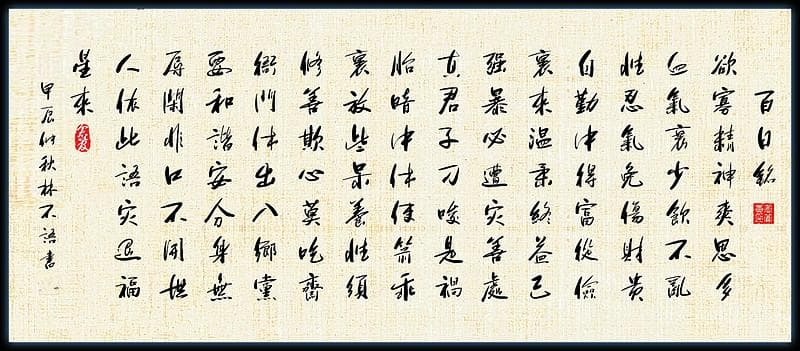 百日銘
欲寡精神爽思多
血氣衰少飲不亂
性忍氣免傷財貴
自勤中得富從儉
裏來温柔終益己
强暴必遭灾善處
真君子刁唆是禍
胎暗中休使箭乖
裏放些呆養性須
修善欺心莫吃齋
衙門休出入鄉黨
要和諧安分身無
辱閑非口不開世
人依此語灾退福
星來
甲辰仲秋林不語書